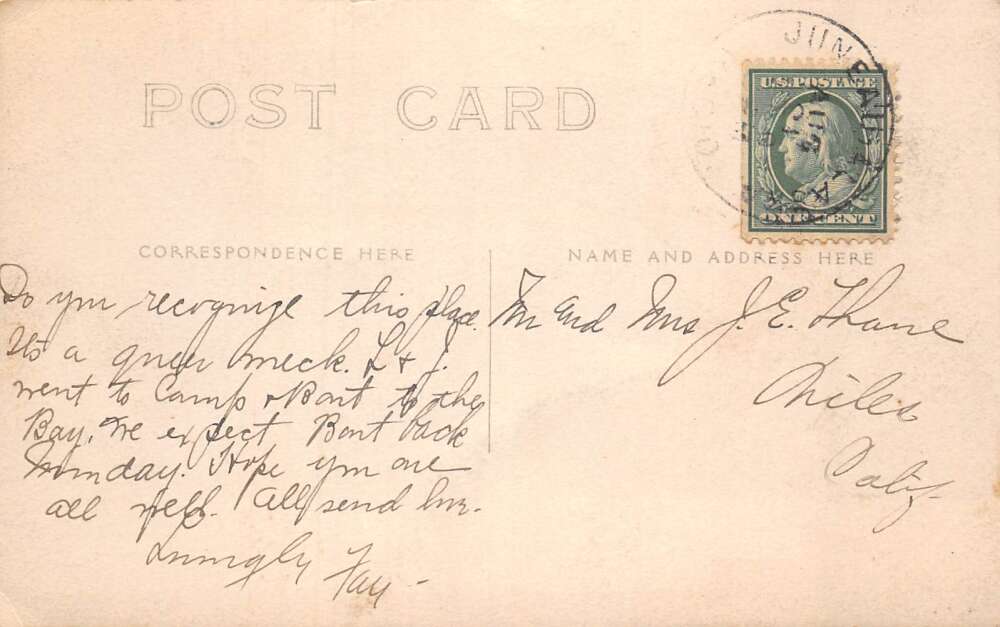 JUNEAU ALASKA
AUG
U.S. POSTAGE
ONE CENT
POST CARD
CORRESPONDENCE HERE
Do you recognize this place.
It's a queer
L & J.
went to Camp & Bart to the
Bay. We expect Bart back
Monday. Hope you are
all well. All send love.
Lovingly Fay -
NAME AND ADDRESS HERE
Mr and Mrs J. E. Thane
Niles
Calif